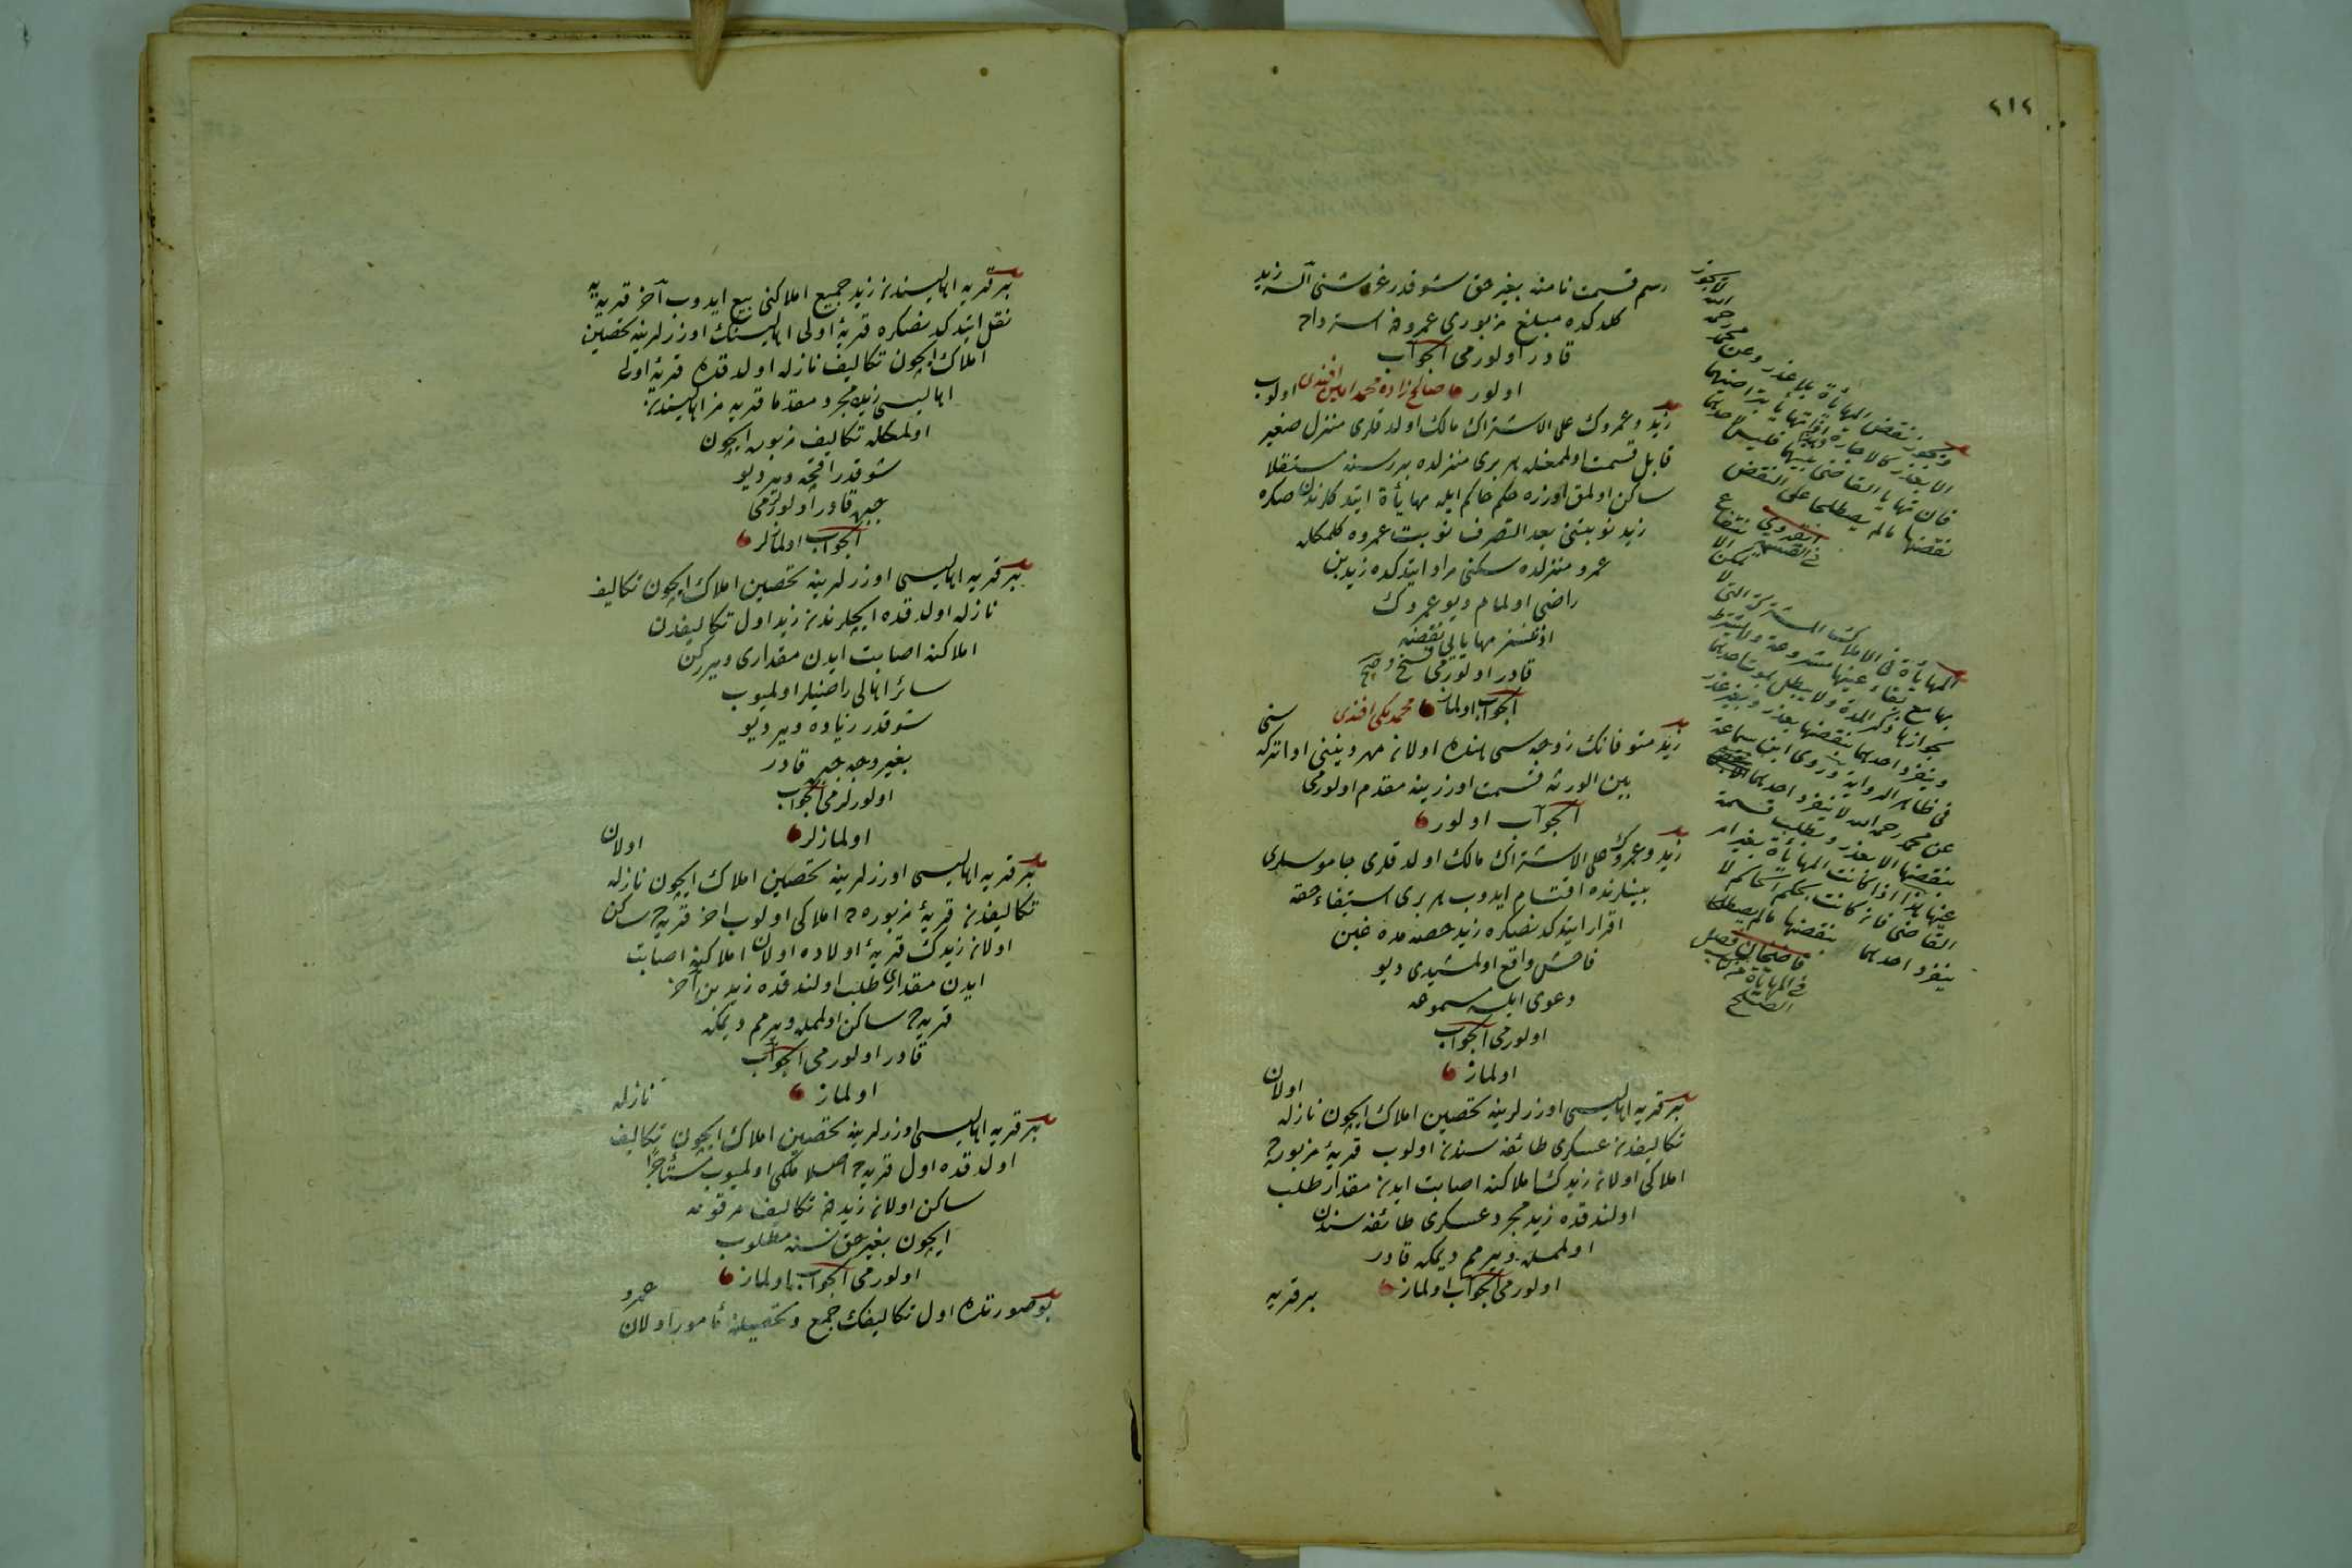 ٢١٢
رسم قسمت نامنه بغير حق شو قدر غروشنى آلسه زيد
كلدكده مبلغ مزبورى عمرودن استرداده
قادر اولورمى الجواب
اولور صالح زاده محمد امين افندى اولوب
زيد وعمروك على الاشتراك مالك اولدقلرى منزل صغير
قابل قسمت اولمغله هر برى منزلده برر سنه مستقلا
ساكن اولمق اوزره حكم حاكم ايله مهايأة ايتدكلرندن صكره
زيد نوبتنى بعد التصرف نوبت عمروه كلمكله
عمرو منزلده سكنى مراد ايتدكده زيد بن
راضى اولمام ديو عمروك
اذنسز مهايايى نقضه
قادر اولورمى
الجواب اولماز محمد مكى افندى
زيد متوفانك زوجه سى هنده اولان مهر دينى ادا تركه سنى
بين الورثه قسمت اوزرينه مقدم اولورمى
الجواب اولور
زيد وعمروك على الاشتراك مالك اولدقلرى جاموسلرى
بينلرنده اقتسام ايدوب هر برى استيفاء حقه
اقرار ايتدكدنصكره زيد حصه مده غبن
فاحش واقع اولمشيدى ديو
دعوى ايلسه مسموعه
اولورمى الجواب
اولماز
بر قريه اهاليسى اوزرلرينه تحصين املاك ايچون نازله اولان
تكاليفدن عسكرى طائفه سندن اولوب قريۀ مزبوره ده
املاكى اولان زيدك املاكنه اصابت ايدن مقدار طلب
اولندقده زيد مجرد عسكرى طائفه سندن
اولمغله ويرمم ديمكه قادر
اولورمى الجواب اولماز
بر قريه
ويجوز نقض المهايأة بلا عذر وعن محمد رحمه الله لا يجوز
الا بعذر كالاجارة
فان تهايا القاضى بينهما فليس لاحدهما
نقضها مالم يصطلحا على النقض
انقروى
فى القسمة
المهايأة فى الاملاك المشتركة التى لا
بها مع بقاء عينها مشروعة ولا يشترط
لجوازها ذكر المدة ولا يبطل بموت احدهما
وينفرد احدهما بنقضها بعذر وبغير عذر
فى ظاهر الرواية وروى ابن سماعة
عن محمد رحمه الله لا ينفرد احدهما
بنقضها الا بعذر ويطلب قسمة
عينها هذا اذا كانت المهايأة بغير امر
القاضى فان كانت بحكم الحاكم لا
ينفرد احدهما بنقضها مالم يصطلحا
قاضيخان
فى المهايأة من
الصلح
بر قريه اهاليسندن زيد جميع املاكنى بيع ايدوب آخر قريه يه
نقل ايتدكدنصكره قريۀ اولى اهاليسنك اوزرلرينه تحصين
املاك ايچون تكاليف نازله اولدقده قريۀ اولى
اهاليسى زيده مجرد مقدما قريه مز اهاليسندن
اولمغله تكاليف مزبور ايچون
شو قدر اقچه وير ديو
جبره قادر اولورلرمى
الجواب اولمازلر
بر قريه اهاليسى اوزرلرينه تحصين املاك ايچون تكاليف
نازله اولدقده ايچلرندن زيد اول تكاليفدن
املاكنه اصابت ايدن مقدارى ويرركن
سائر اهالى راضيلر اولميوب
شو قدر زياده وير ديو
بغير وجه جبره قادر
اولورلرمى الجواب
اولمازلر
بر قريه اهاليسى اوزرلرينه تحصين املاك ايچون نازله اولان
تكاليفدن قريۀ مزبوره ده املاكى اولوب اخر قريه ده ساكن
اولان زيدك قريۀ اولاده اولان املاكنه اصابت
ايدن مقدارى طلب اولندقده زيد بن آخر
قريه ده ساكن اولمغله ويرمم ديمكه
قادر اولورمى الجواب
اولماز
بر قريه اهاليسى اوزرلرينه تحصين املاك ايچون تكاليف نازله
اولدقده اول قريه ده اصلا ملكى اولميوب مستأجرا
ساكن اولان زيددن تكاليف مرقومه
ايچون بغير حق نسنه مطلوب
اولورمى الجواب اولماز
بو صورتده اول تكاليفك جمع وتحصيلنه مأمور اولان عمرو